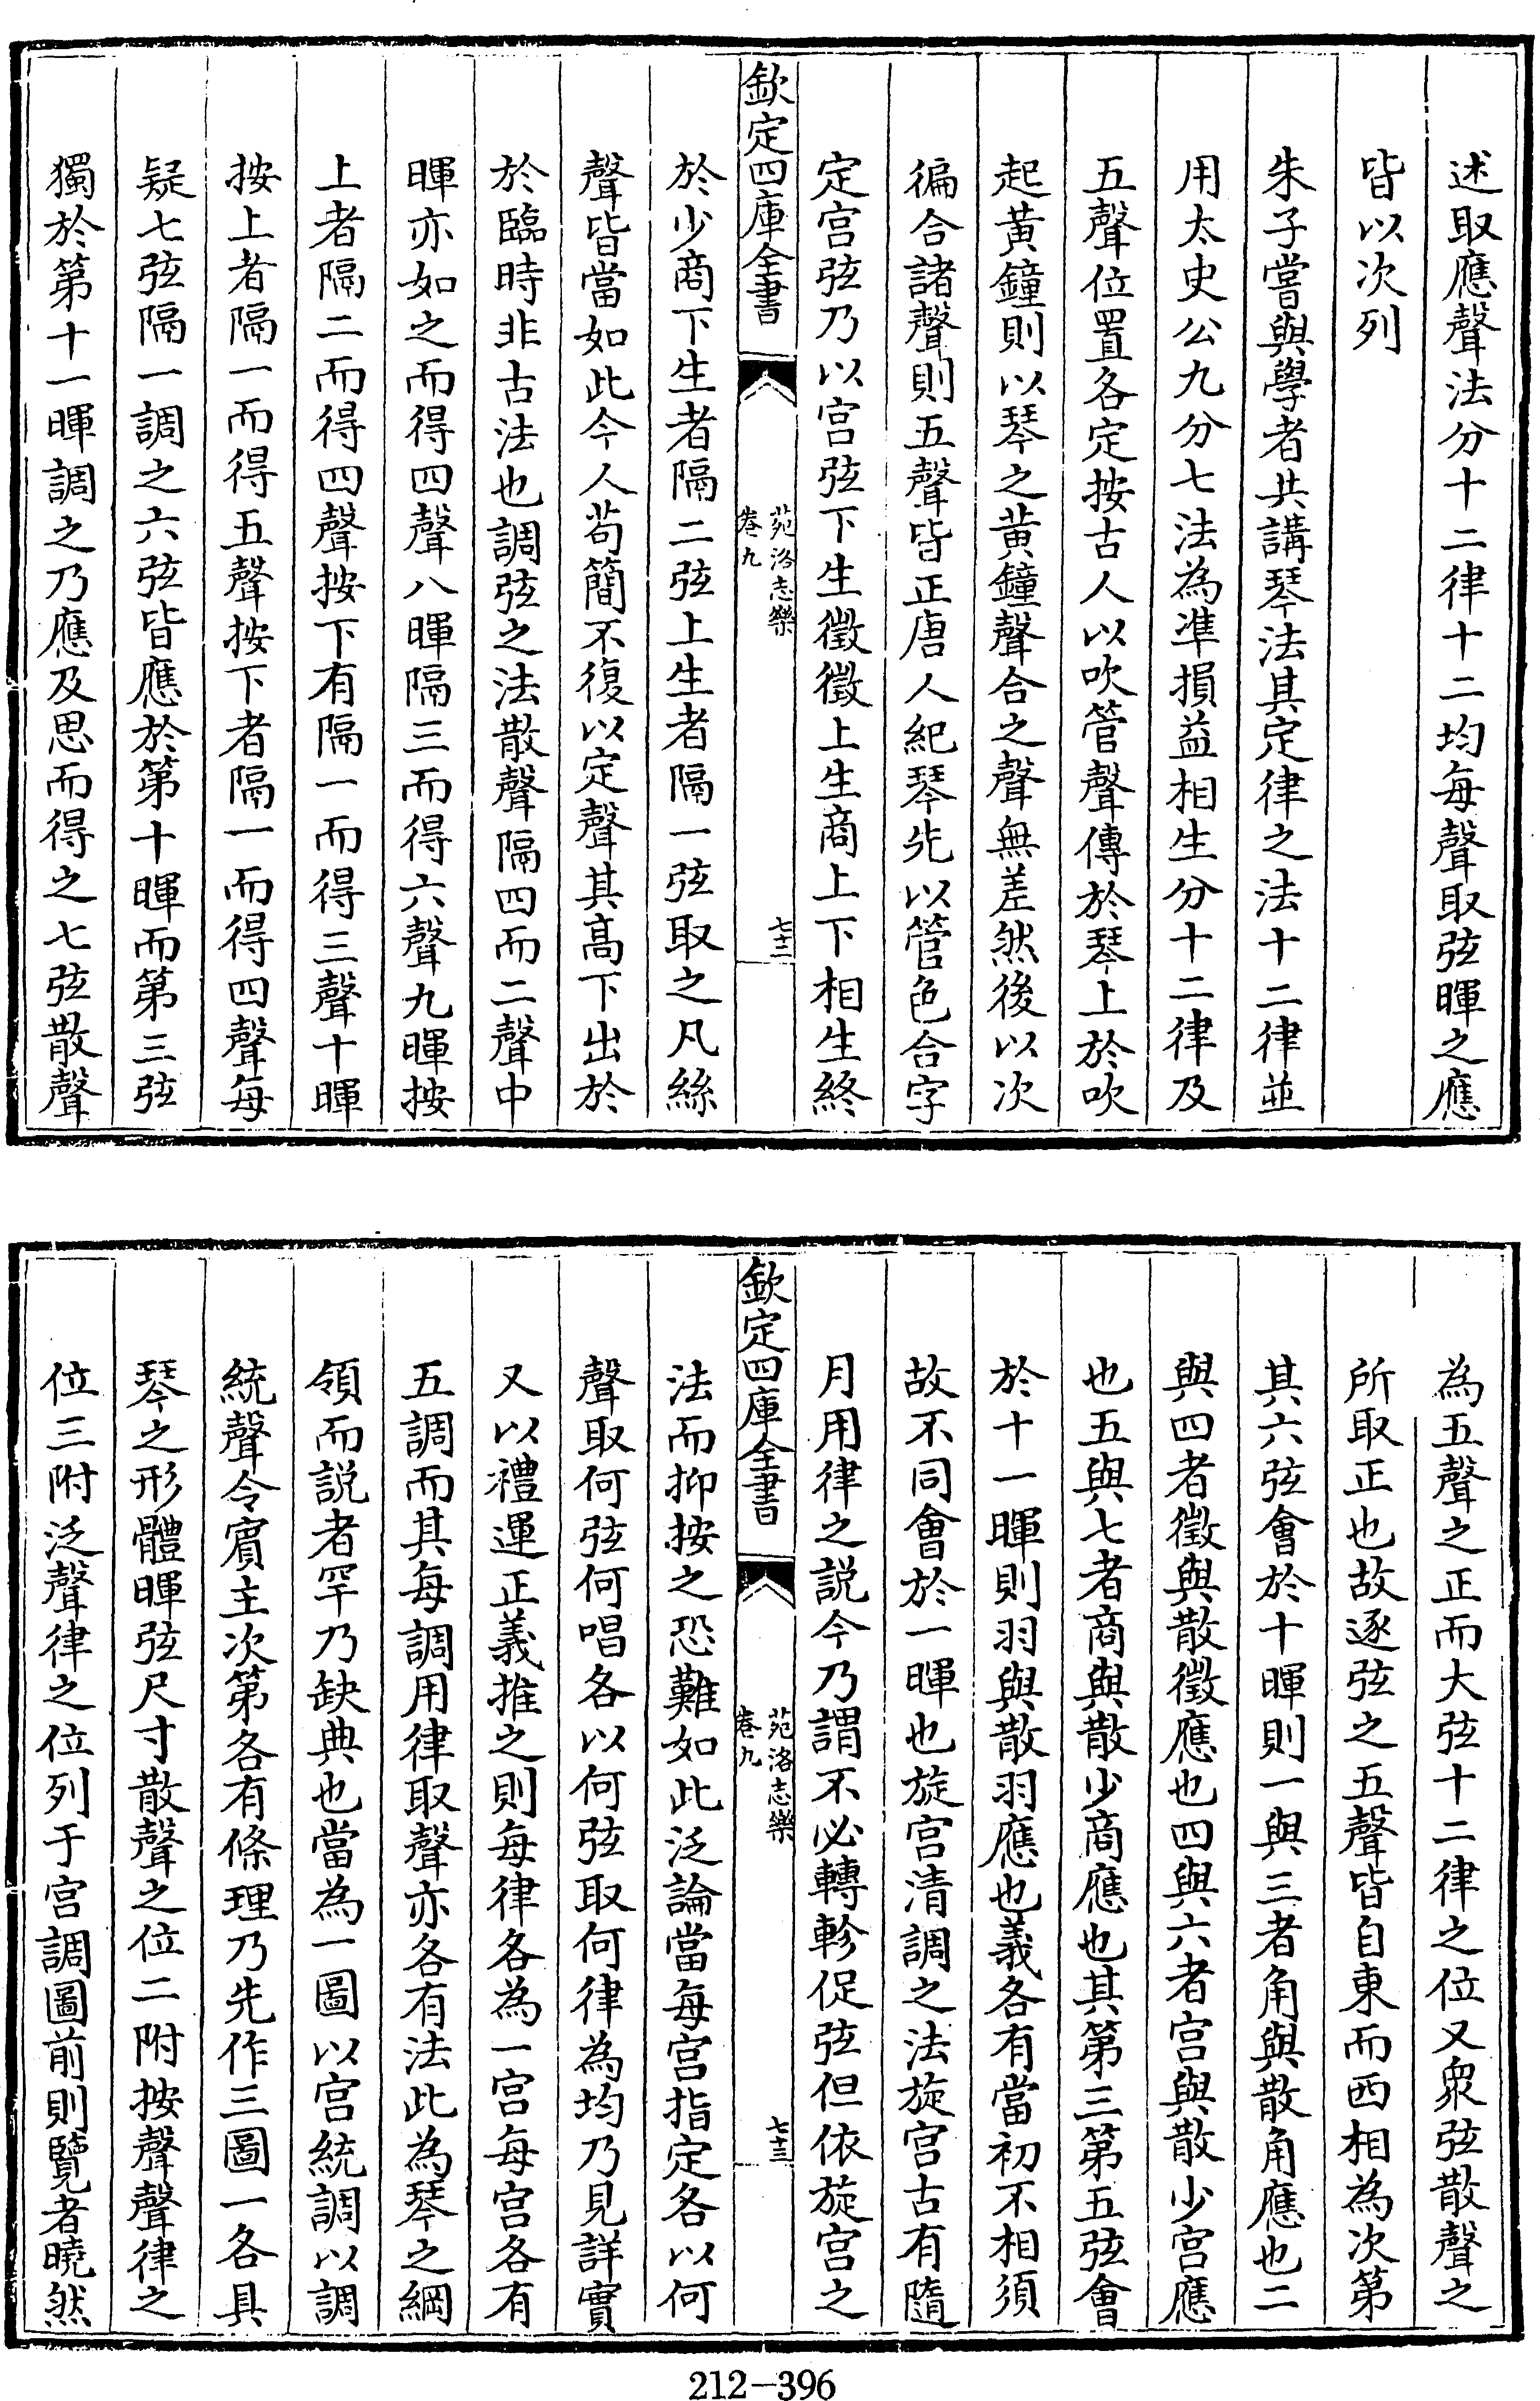 述取應聲法分十二律十二均每聲取弦暉之應
皆以次列
朱子嘗與學者共講琴法其定律之法十二律並
用太史公九分七法為準損益相生分十二律及
五聲位置各定按古人以吹管聲傳於琴上於吹
起黃鐘則以琴之黃鐘聲合之聲無差然後以次
徧合諸聲則五聲皆正唐人紀琴先以管色合字
定宫弦乃以宫弦下生徵徵上生商上下相生終
欽定四庫全書
苑洛志樂
卷九
七十二
於少商下生者隔二弦上生者隔一弦取之凡絲
聲皆當如此今人茍簡不復以定聲其髙下出於
於臨時非古法也調弦之法散聲隔四而二聲中
暉亦如之而得四聲八暉隔三而得六聲九暉按
上者隔二而得四聲按下有隔一而得三聲十暉
按上者隔一而得五聲按下者隔一而得四聲每
疑七弦隔一調之六弦皆應於第十暉而第三弦
獨於第十一暉調之乃應及思而得之七弦散聲
為五聲之正而大弦十二律之位又衆弦散聲之
所取正也故逐弦之五聲皆自東而西相為次第
其六弦會於十暉則一與三者角與散角應也二
與四者徵與散徵應也四與六者宫與散少宫應
也五與七者商與散少商應也其第三第五弦會
於十一暉則羽與散羽應也義各有當初不相須
故不同會於一暉也旋宫清調之法旋宫古有隨
月用律之説今乃謂不必轉軫促弦但依旋宫之
欽定四庫全書
苑洛志樂
卷九
七十三
法而抑按之恐難如此泛論當每宫指定各以何
聲取何弦何唱各以何弦取何律為均乃見詳實
又以禮運正義推之則每律各為一宫每宫各有
五調而其每調用律取聲亦各有法此為琴之綱
領而説者罕乃缺典也當為一圖以宫統調以調
統聲令賓主次第各有條理乃先作三圖一各具
琴之形體暉弦尺寸散聲之位二附按聲聲律之
位三附泛聲律之位列于宫調圖前則覽者曉然
212-396